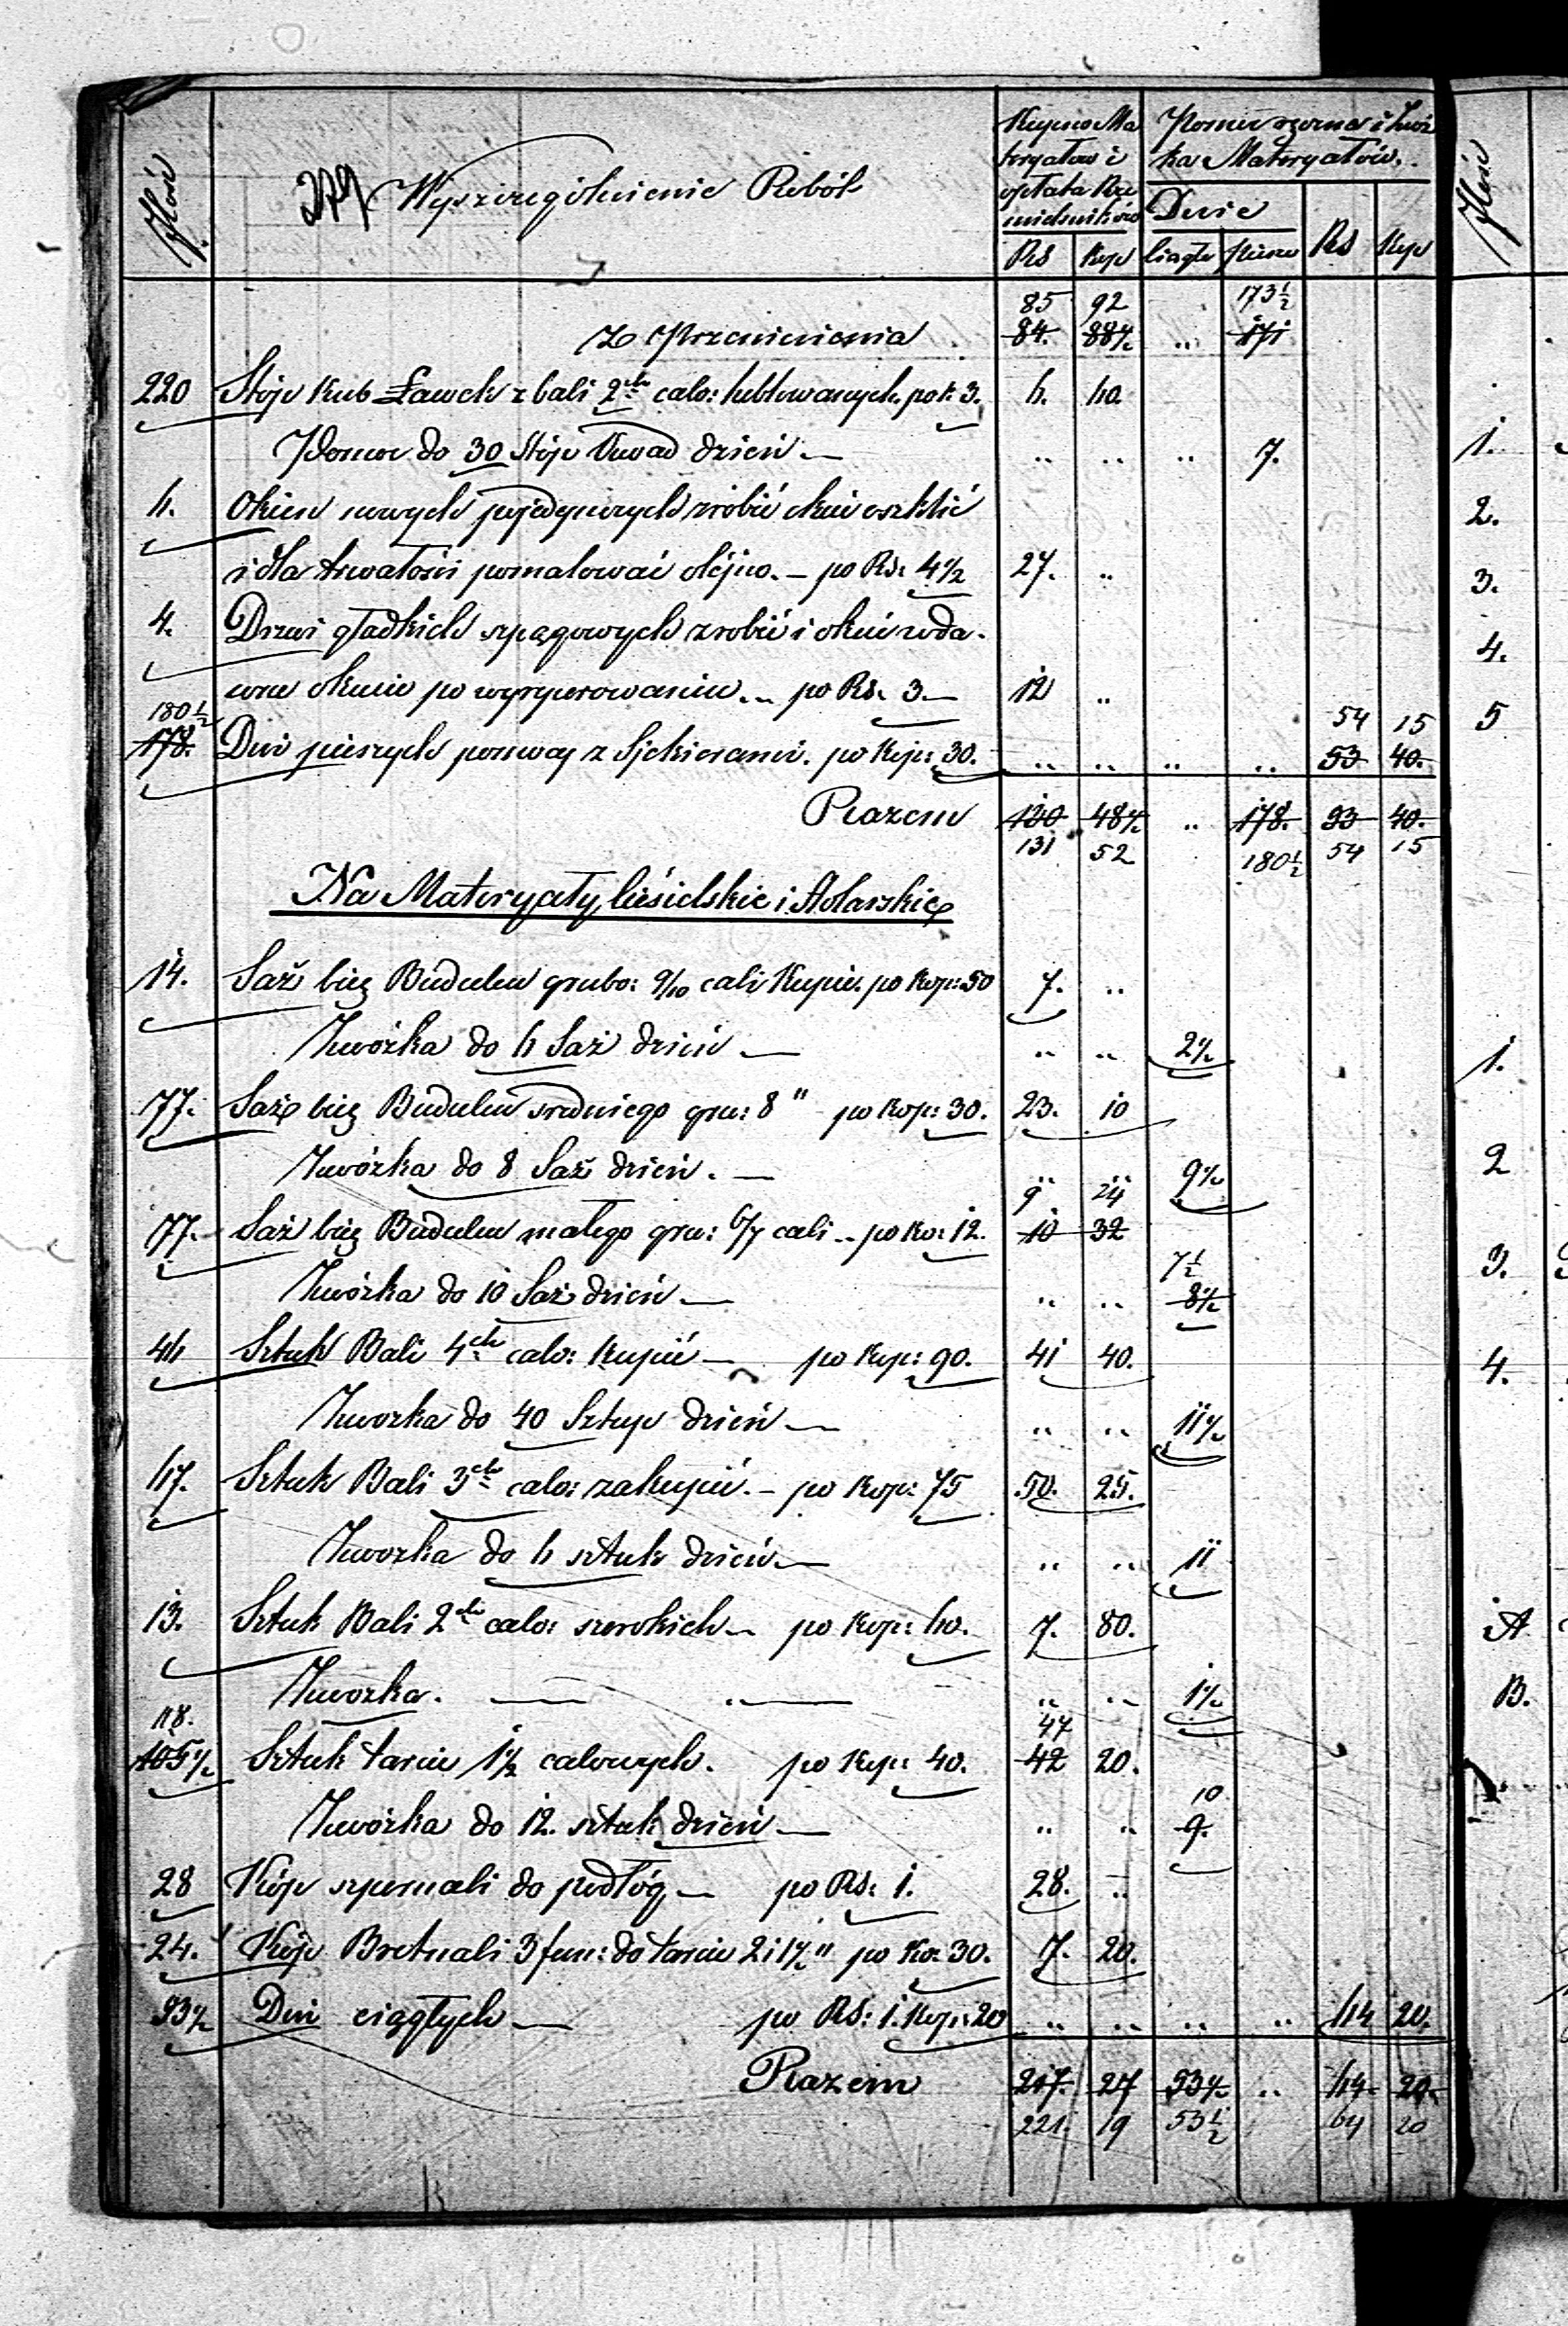 Ilość
Wyszczególnienie Robót
Kupno Ma
teryałów i
opłata Rze
mieślników
Rs Kop
Pomoc ręczna i Zwóz
ka Materyałów.
Dnie
Ciągłe Piesze Rs Kop
85 92 173½
Z Przeniesienia 84. 88½ .. 171
220 Stóp Kub Ławek z bali 2ch calo: heblowanych po k: 3. 6. 60.
Pomoc do 30 Stóp Kwad dzień — .. .. .. 7.
6. Okien nowych pojedynczych zrobić okuć oszklić
i dla trwałości pomalować olejno. — po Rs: 4½ 27. ..
4. Drzwi gładkich szpągowych zrobić i okuć w da-
wne okucie po wyryperowaniu.. po Rs. 3 — 12 ..
180½ 54 15
178. Dni pieszych pomocy z Siekierami. po Kop: 30. .. .. .. .. 53 40.
Razem 130 48½ .. 178. 53 40.
131 52 180½ 54 15
Na Materyały Ciesielskie i Stolarskie
14. Saż bieg Budulcu grubo: 9/10 cali Kupić po Kop: 50 7. ..
Zwózka do 6 Saż dzień — .. .. 2½
77. Saż bieg Budulcu średniego gru: 8" po Kop: 30. 23. 10
Zwózka do 8 Saż dzień. — .. .. 9½
9 24
77. Saż bieg Budulcu małego gru: 6/7 cali .. po Ko: 12. 10 32
7½
Zwózka do 10 Saż dzień — .. .. 8½
46 Sztuk Bali 4ch calo: kupić — po Kop: 90. 41 40.
Zwozka do 40 Stóp dzień — .. .. 11½
67. Sztuk Bali 3ch calo: zakupić. — po Kop: 75 50. 25.
Zwozka do 6 sztuk dzień — .. .. 11
13. Sztuk Bali 2ch calo: szerokich — po Kop: 60. 7. 80.
Zwozka. — .. — .. .. 1½
118. 47
105½ Sztuk tarcic 1½ calowych. po Kop: 40. 42 20.
10
Zwózka do 12. sztuk dzień — .. .. 9.
28 Kóp szpernali do podłóg — po Rs: 1. 28. ..
24. Kóp Bretnali 3 fun: do tarcic 2 i 1½" po Ko: 30. 7. 20.
53½ Dni ciągłych — po Rs: 1. Kop: 20 .. .. .. .. 64 20.
Razem 217. 27 53½ .. 64 20.
221. 19 53½ 64 20
Ilość
1.
2.
3.
4.
5
1.
2
3.
4.
A
B.